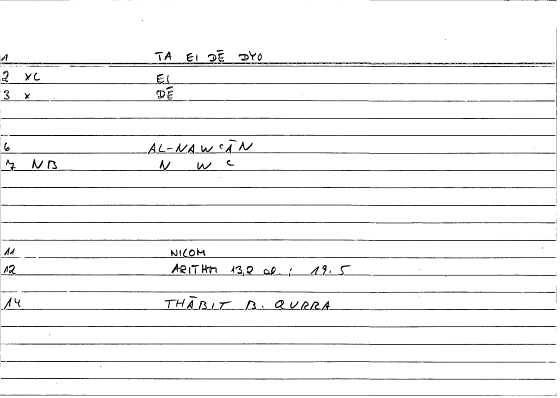 1 TA EI DĒ DYO
2 XC EI
3 X DĒ
6 AL-NAWCĀN
7 NB N W C
11 NICOM
12 ARITHM 13,2 al. ; 19.5
14 THĀBIT B. QURRA